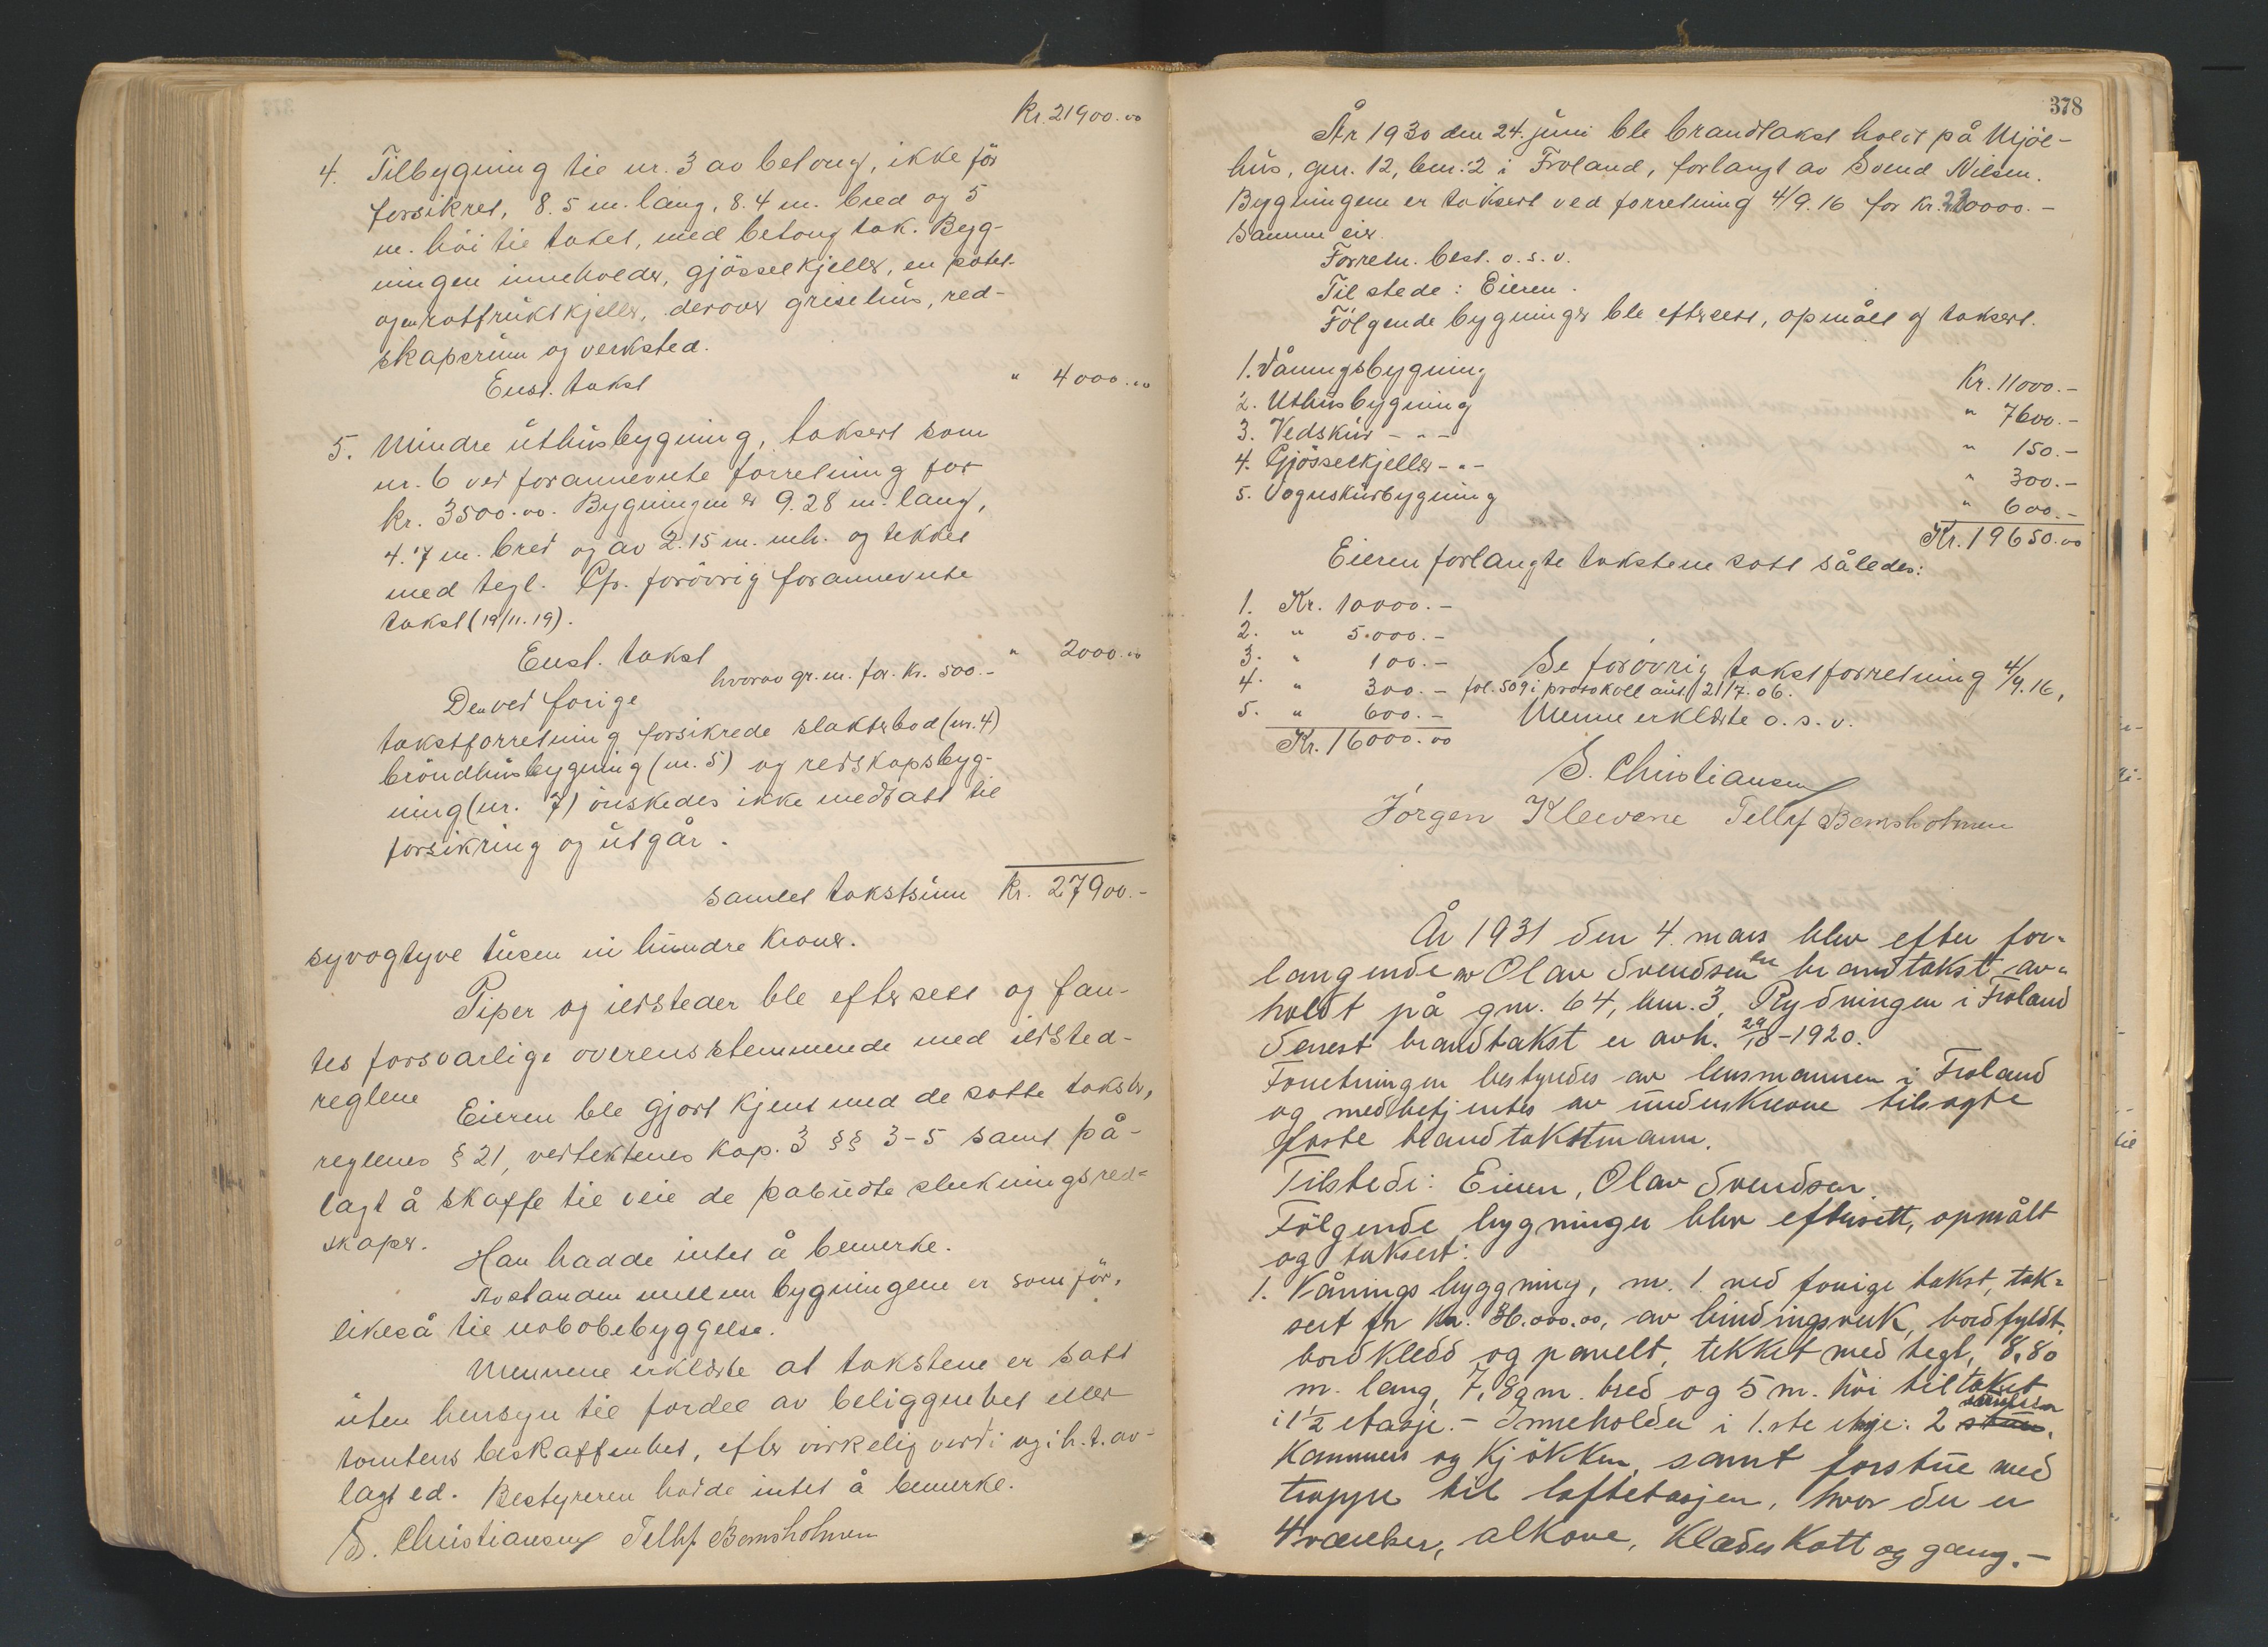 Kr. 21900.00
4. Tilbygning til nr. 3 av betong, ikke för
forsikret, 8.5 m. lang, 8.4 m. bred og 5
m. höi til taket, med betong tak. Byg-
ningen inneholder, gjösselkjeller, en potet-
og en rotfruktkjeller, derover grisehus, red-
skapsrum og verksted.
Enst. takst " 4000.00
5. Mindre uthusbygning, taksert som
nr. 6 ved forannevnte forretning for
kr. 3500.00. Bygningen er 9.28 m. lang,
4.7 m. bred og av 2.15 m. mh. og tekket
med tegl. Cfr. forövrig forannevnte
takst (19/11.19).
Enst. takst " 2000.00
hvorav gr.m. for kr. 500.-
Den ved forige
takstforretning forsikrede slakterbod (nr. 4)
bröndhusbygning (nr. 5) og redskapsbyg-
ning (nr. 7) önskedes ikke medtatt til
forsikring og utgår.
Samlet takstsum Kr. 27900.-
syvogtyve tusen ni hundre kroner.
Piper og ildsteder ble eftersett og fan-
tes forsvarlige overensstemmende med ildsted-
reglene
Eieren ble gjort kjent med de satte takster,
reglenes § 21, vedtektenes kap. 3 §§ 3-5 samt på-
lagt å skaffe til veie de påbudte slukningsred-
skaper.
Han hadde intet å bemerke.
Avstanden mellem bygningene er som för,
likeså til nabobebyggelse.
Mennene erklærte at takstene er satt
uten hensyn til fordel av beliggenhet eller
tomtens beskaffenhet, efter virkelig verdi og i h.t. av-
lagt ed. Bestyreren hadde intet å bemerke.
S. Christiansen Tellef Bomsholmen
378
År 1930 den 24. juni ble brandtakst holdt på Mjöl-
hus, gnr. 12, bnr. 2 i Froland, forlangt av Svend Nilsen.
Bygningene er taksert ved forretning 4/9.16 for kr. 20000.-
Samme eier.
Forretn. best. o.s.v.
Til stede: Eieren.
Fölgende bygninger ble eftersett, opmålt og taksert.
1. Våningsbygning Kr. 11000.-
2. Uthusbygning " 7600.-
3. Vedskur - " - " 150.-
4. Gjösselkjeller - " - " 300.-
5. Vognskurbygning " 600.-
Kr. 19650.00
Eieren forlangte takstene satt således:
1. Kr. 10000.-
2. " 5000.-
3. " 100.- Se forövrig takstforretning 4/9.16,
4. " 300.- fol. 509 i protokoll aut. 21/7.06.
5. " 600.- Menne erklærte o.s.v.
Kr. 16000.00
S. Christiansen
Jörgen Klevene Tellef Bomsholmen
År 1931 den 4. mars blev efter for-
langende av Olav Svendsen en brandtakst av-
holdt på gnr. 64, bnr. 3, Rydningen i Froland
Senest brandtakst er avh. 29/10-1920.
Forretningen bestyredes av lensmannen i Froland
og medbetjentes av underskrevne tilsagte
faste brandtakstmann.
Tilstede: Eieren, Olav Svendsen.
Fölgende bygninger blev eftersett, opmålt
og taksert:
1. Våningsbyggning, nr. 1 ved forrige takst, tak-
sert for kr. 36.000.00, av bindingsverk, bordfyldt,
bordkledd og panelt, tekket med tegl, 8,80
m. lang, 7,89 m. bred og 5 m. höi til taket
i 1½ etasje. - Inneholder i 1.ste etasje: 2 stuer,
kammers og kjökken, samt forstue med
trappe til loftetasjen, hvor der er
4 værelser, alkove, klædeskott og gang. -